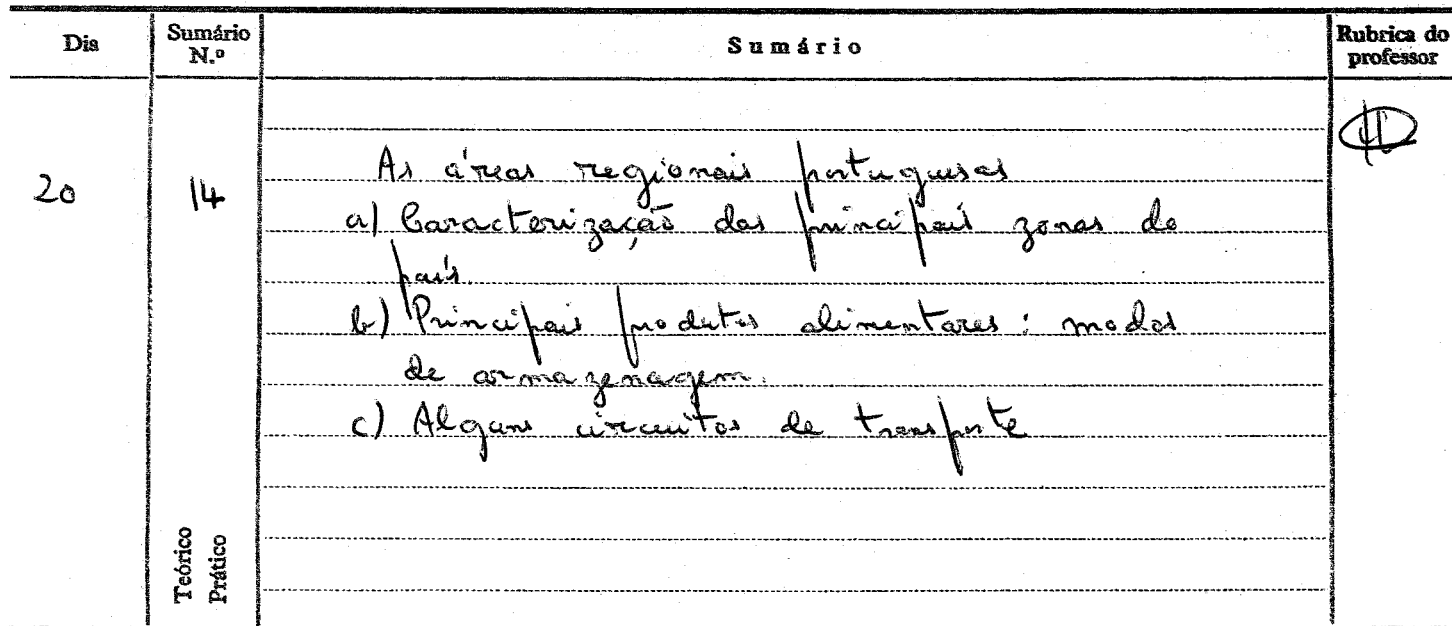 Dia
Sumário N.º
Sumário
Rubrica do professor
20
14
As áreas regionais portuguesas
a) Caracterização das principais zonas do
país.
b) Principais produtos alimentares: modos
de armazenagem.
c) Alguns circuitos de transporte
Teórico
Prático